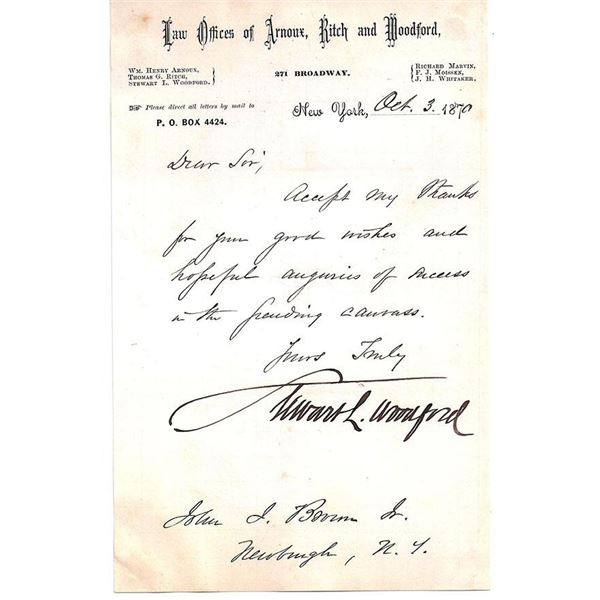 Law Offices of Arnoux, Ritch and Woodford,
WM. HENRY ARNOUX,
THOMAS G. RITCH,
STEWART L. WOODFORD.
271 BROADWAY.
RICHARD MARVIN,
F. J. MOISSEN,
J. H. WHITAKER.
☞ Please direct all letters by mail to
P. O. BOX 4424.
New York, Oct. 3. 1870
Dear Sir,
Accept my thanks
for your good wishes and
hopeful auguries of success
in the pending canvass.
Yours Truly
Stewart L. Woodford
John J. Brown Jr.
Newburgh, N. Y.